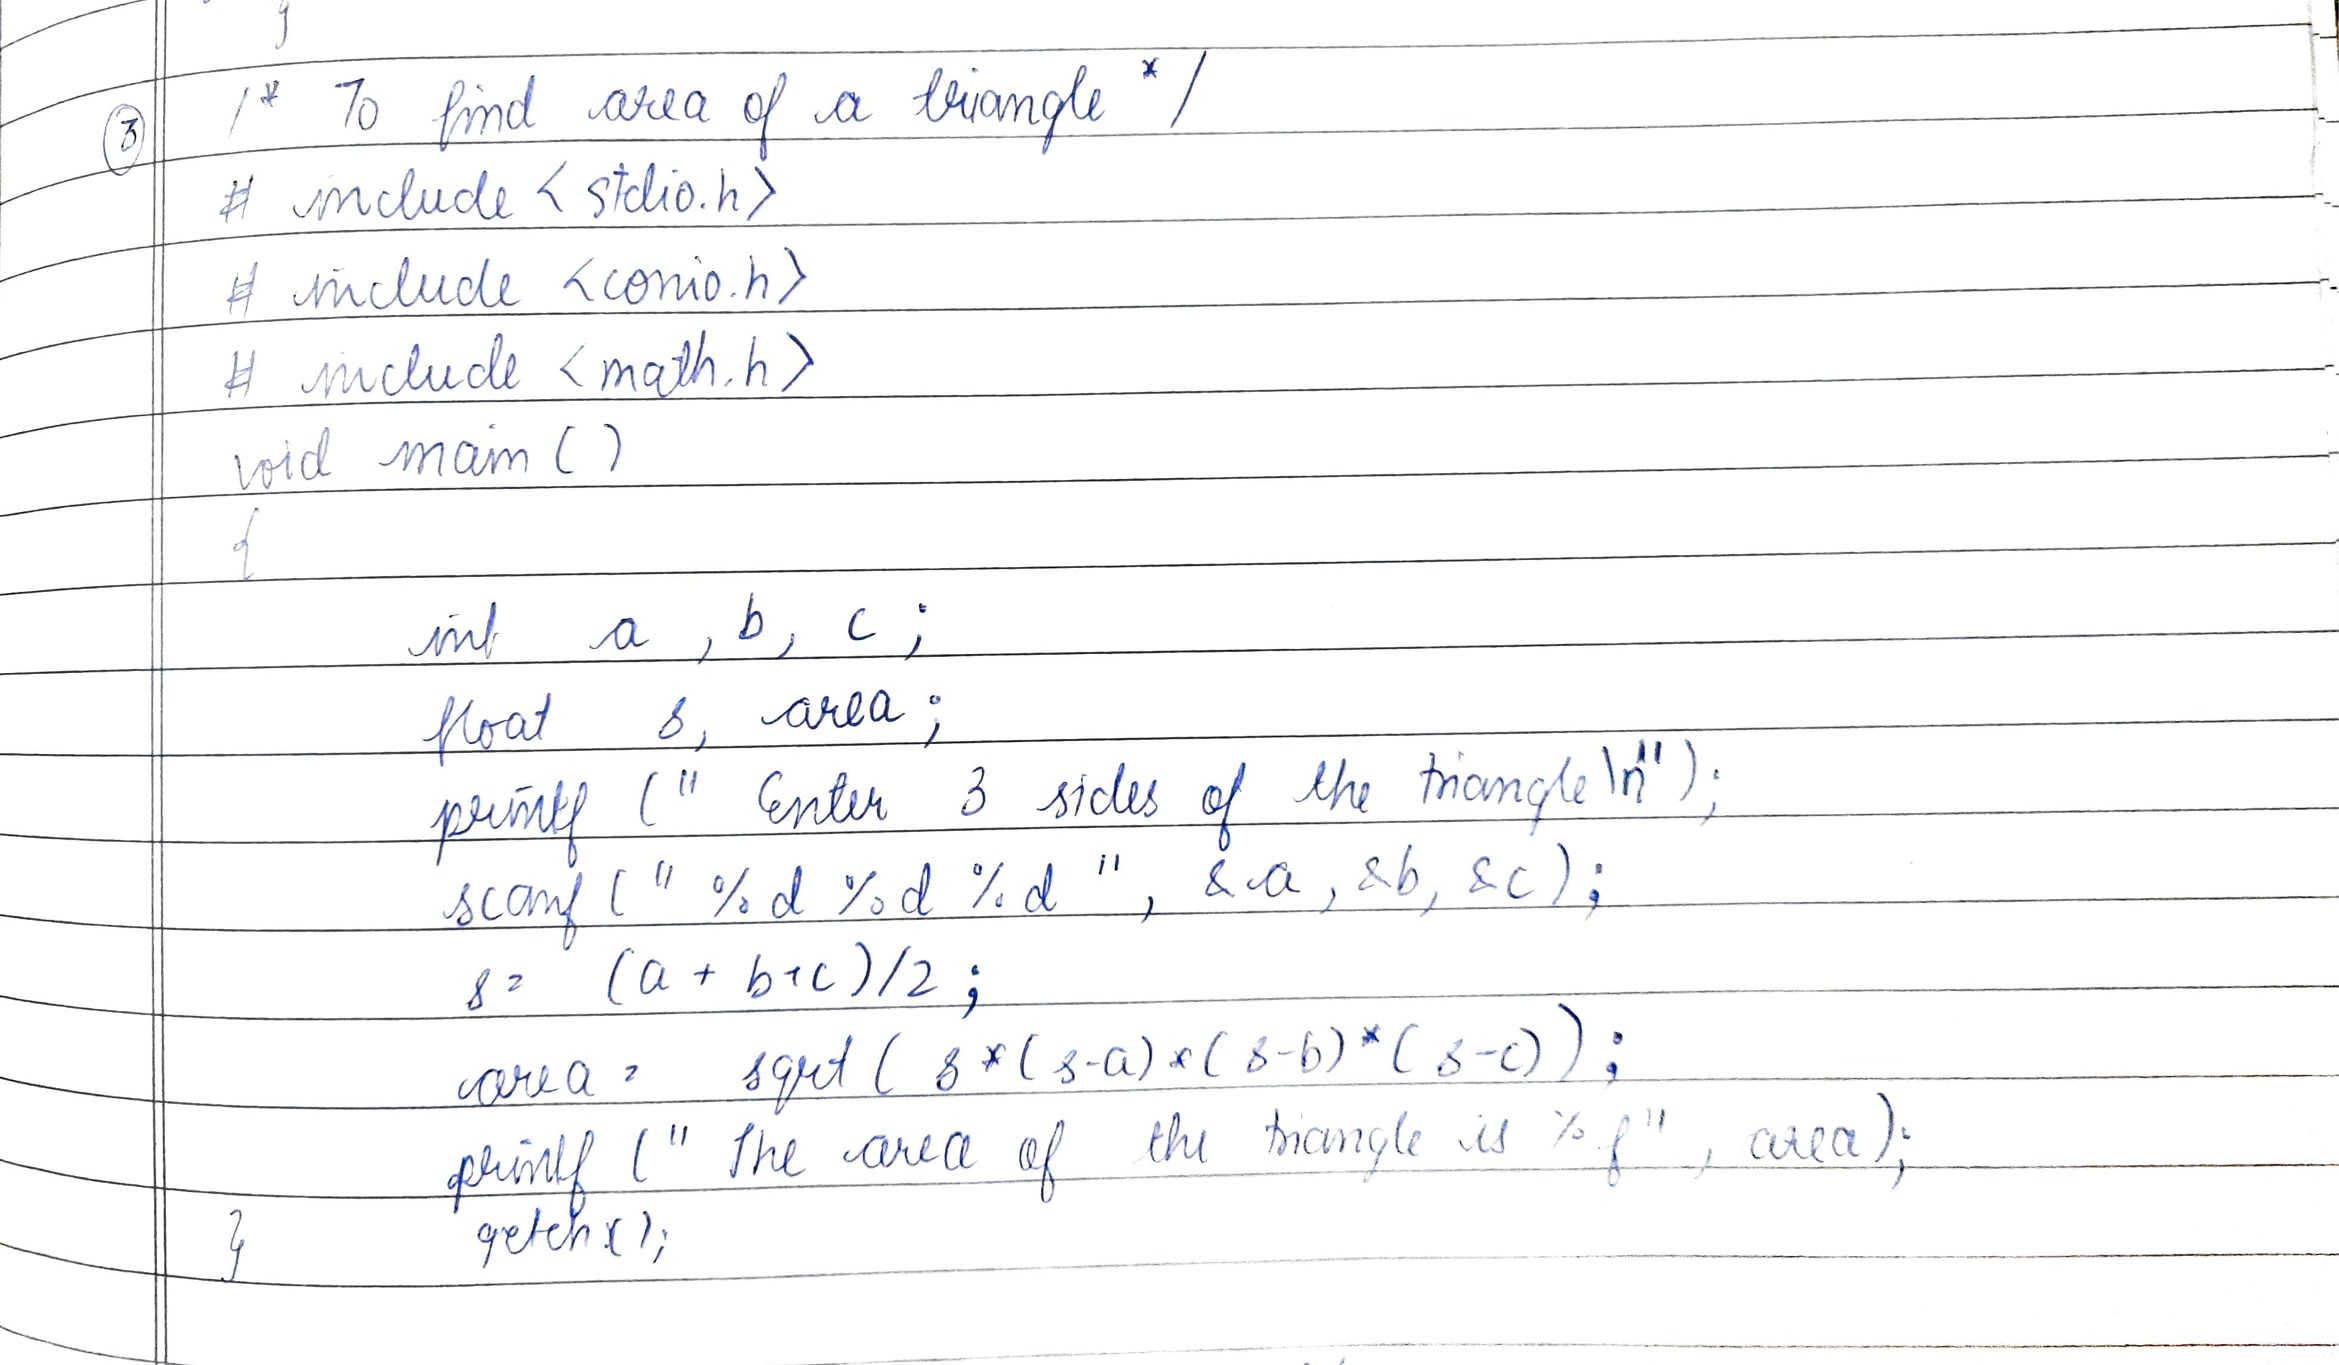 }
③ /* To find area of a triangle */
# include < stdio.h>
# include <conio.h>
# include <math.h>
void main ( )
{
int a , b, c ;
float s, area ;
printf (" Enter 3 sides of the triangle \n");
scanf (" %d %d %d ", &a , &b, &c) ;
s = (a + b+c)/2 ;
area = sqrt ( s *( s-a) *( s-b) *( s-c)) ;
printf (" The area of the triangle is %f" , area);
getch ( );
}